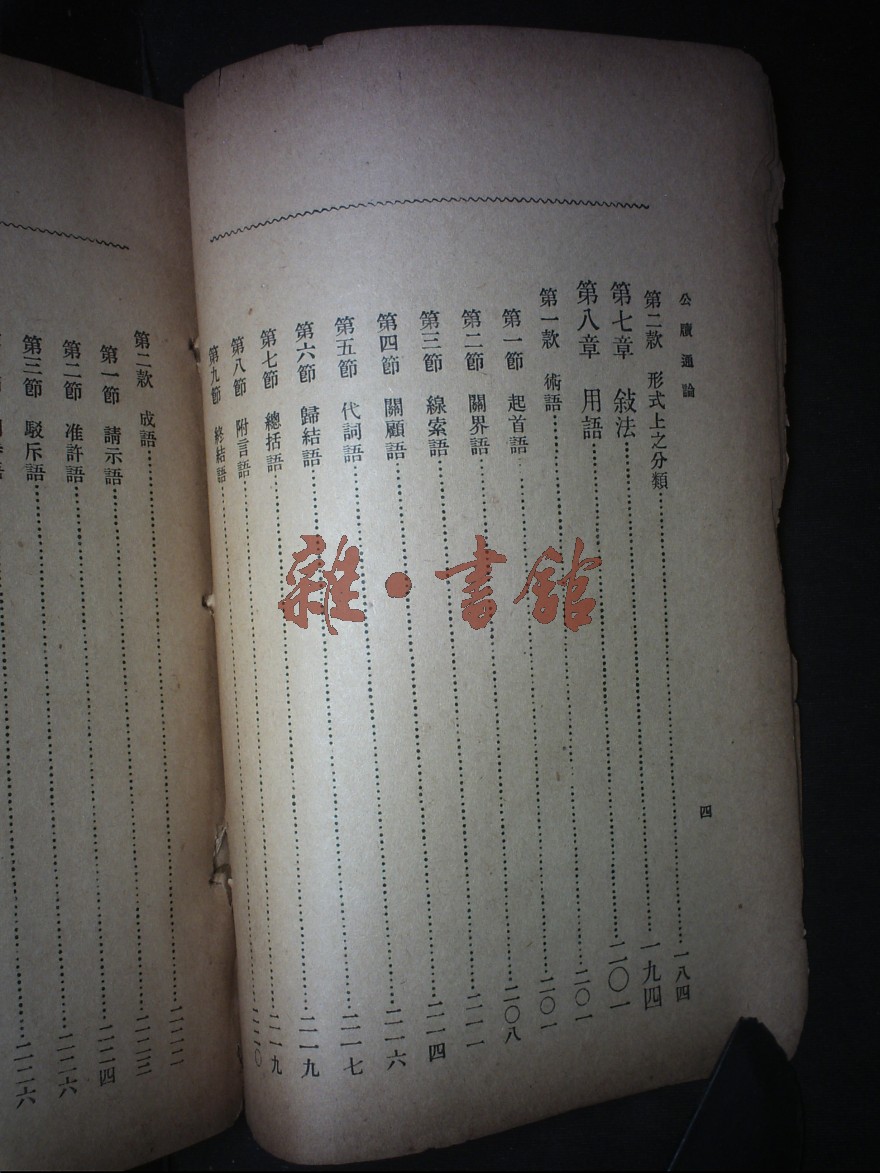 公牘通論 四
第二款 形式上之分類……一八四
第七章 敍法……一九四
第八章 用語……二〇一
第一款 術語……二〇一
第一節 起首語……二〇一
第二節 關界語……二〇八
第三節 線索語……二一一
第四節 關顧語……二一四
第五節 代詞語……二一六
第六節 歸結語……二一七
第七節 總括語……二一九
第八節 附言語……二一九
第九節 終結語……二二〇
第二款 成語……二二二
第一節 請示語……二二三
第二節 准許語……二二四
第三節 駁斥語……二二六
二二六
雜·書館